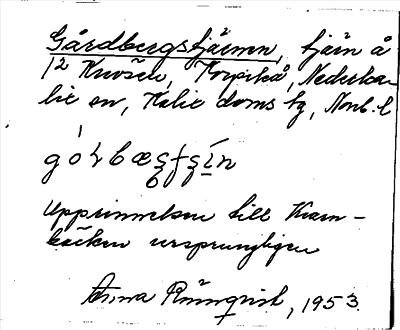 Gårdbergstjärnen, tjärn å
12 Knösen, Korpikå, Nederka-
lix sn, Kalix doms bg, Norrb. l
Upprinnelsen till Kvarn-
bäcken ursprungligen
Anna Rönnqvist, 1953.